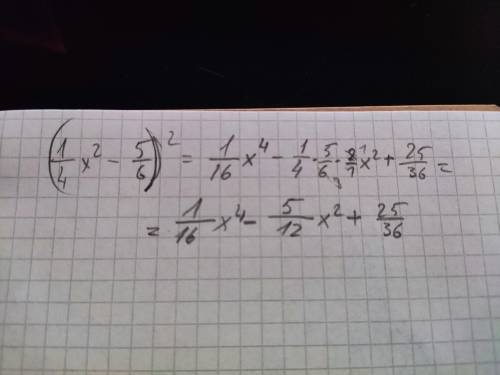 (1/4 x² - 5/6)² = 1/16 x⁴ - 1/4 · 5/6₃ · 2/1¹ x² + 25/36 =
= 1/16 x⁴ - 5/12 x² + 25/36